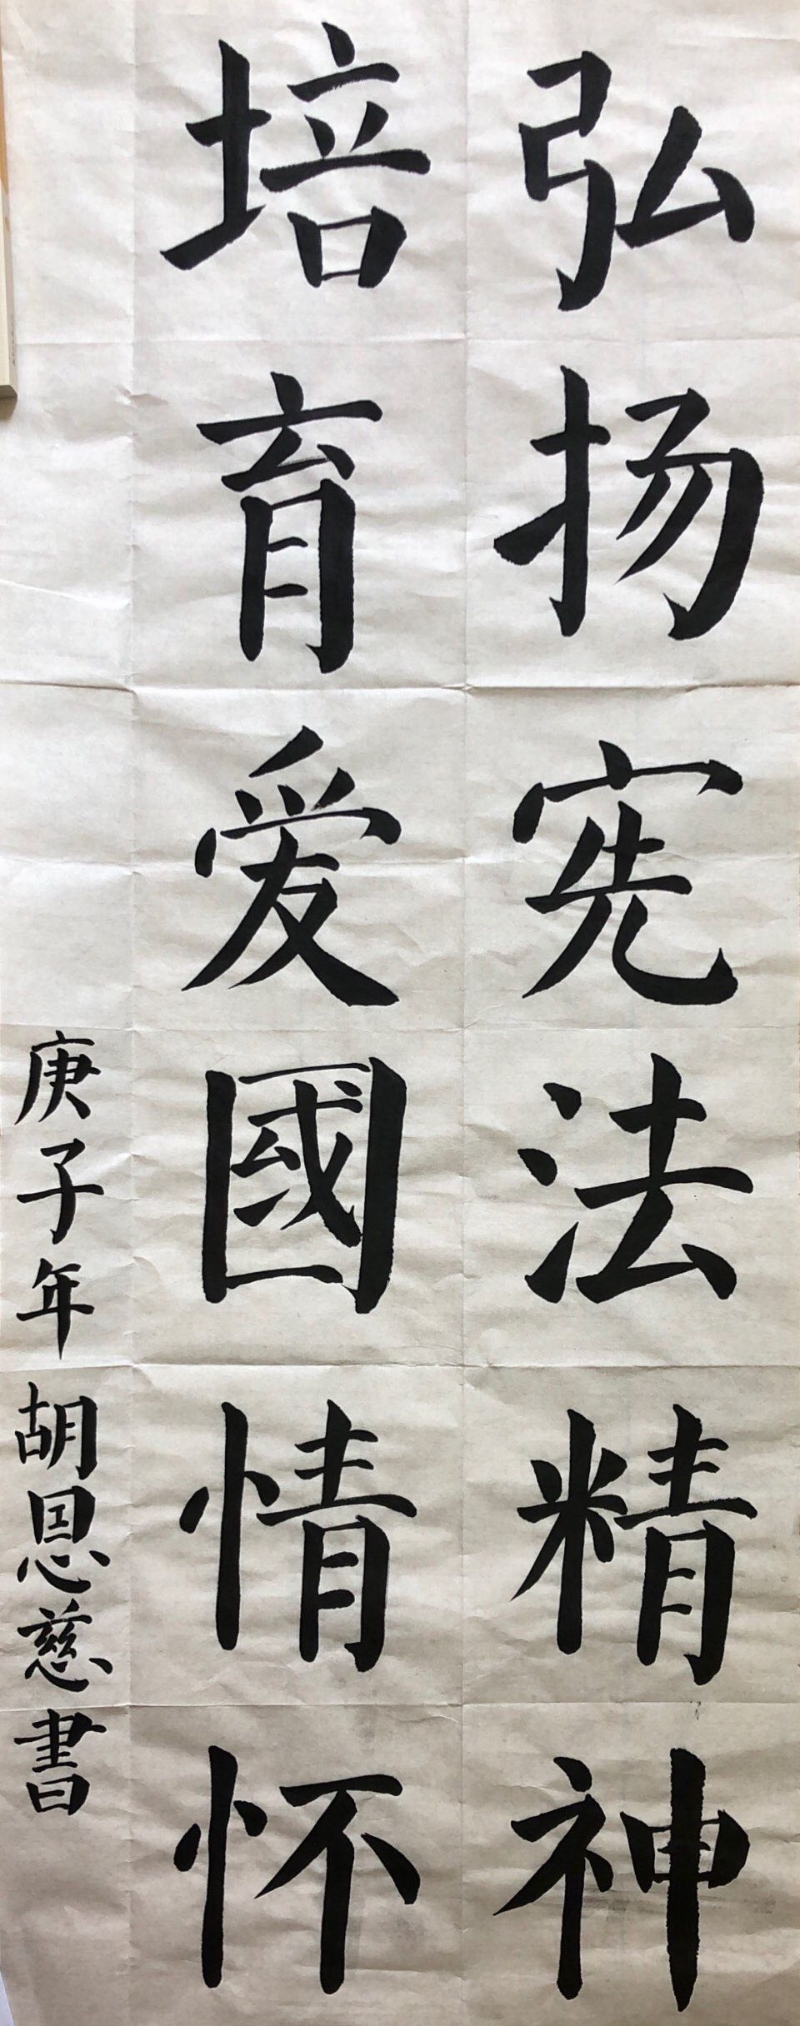 弘扬宪法精神
培育爱國情怀
庚子年胡恩慈書